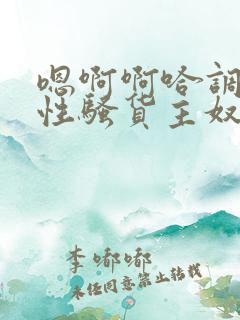 嗯啊啊哈调
性骚货主奴
李嘟嘟
未经同意禁止转载